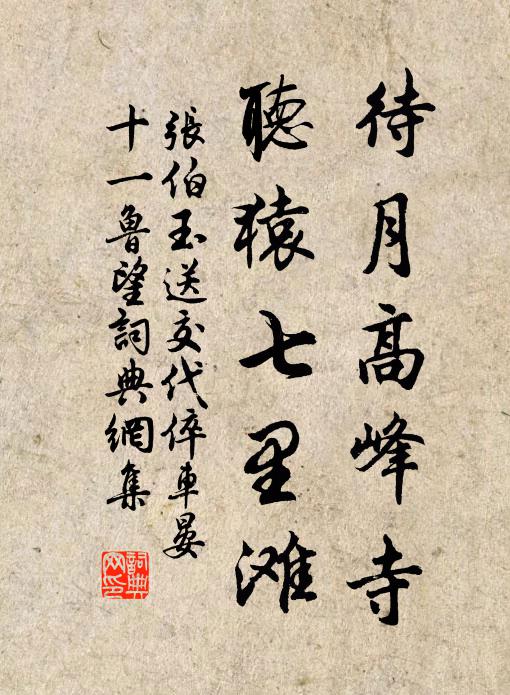 待月高峰寺
聽猿七里滩
張伯玉送交代倅車晏
十一魯望詞典網集
詞典网印